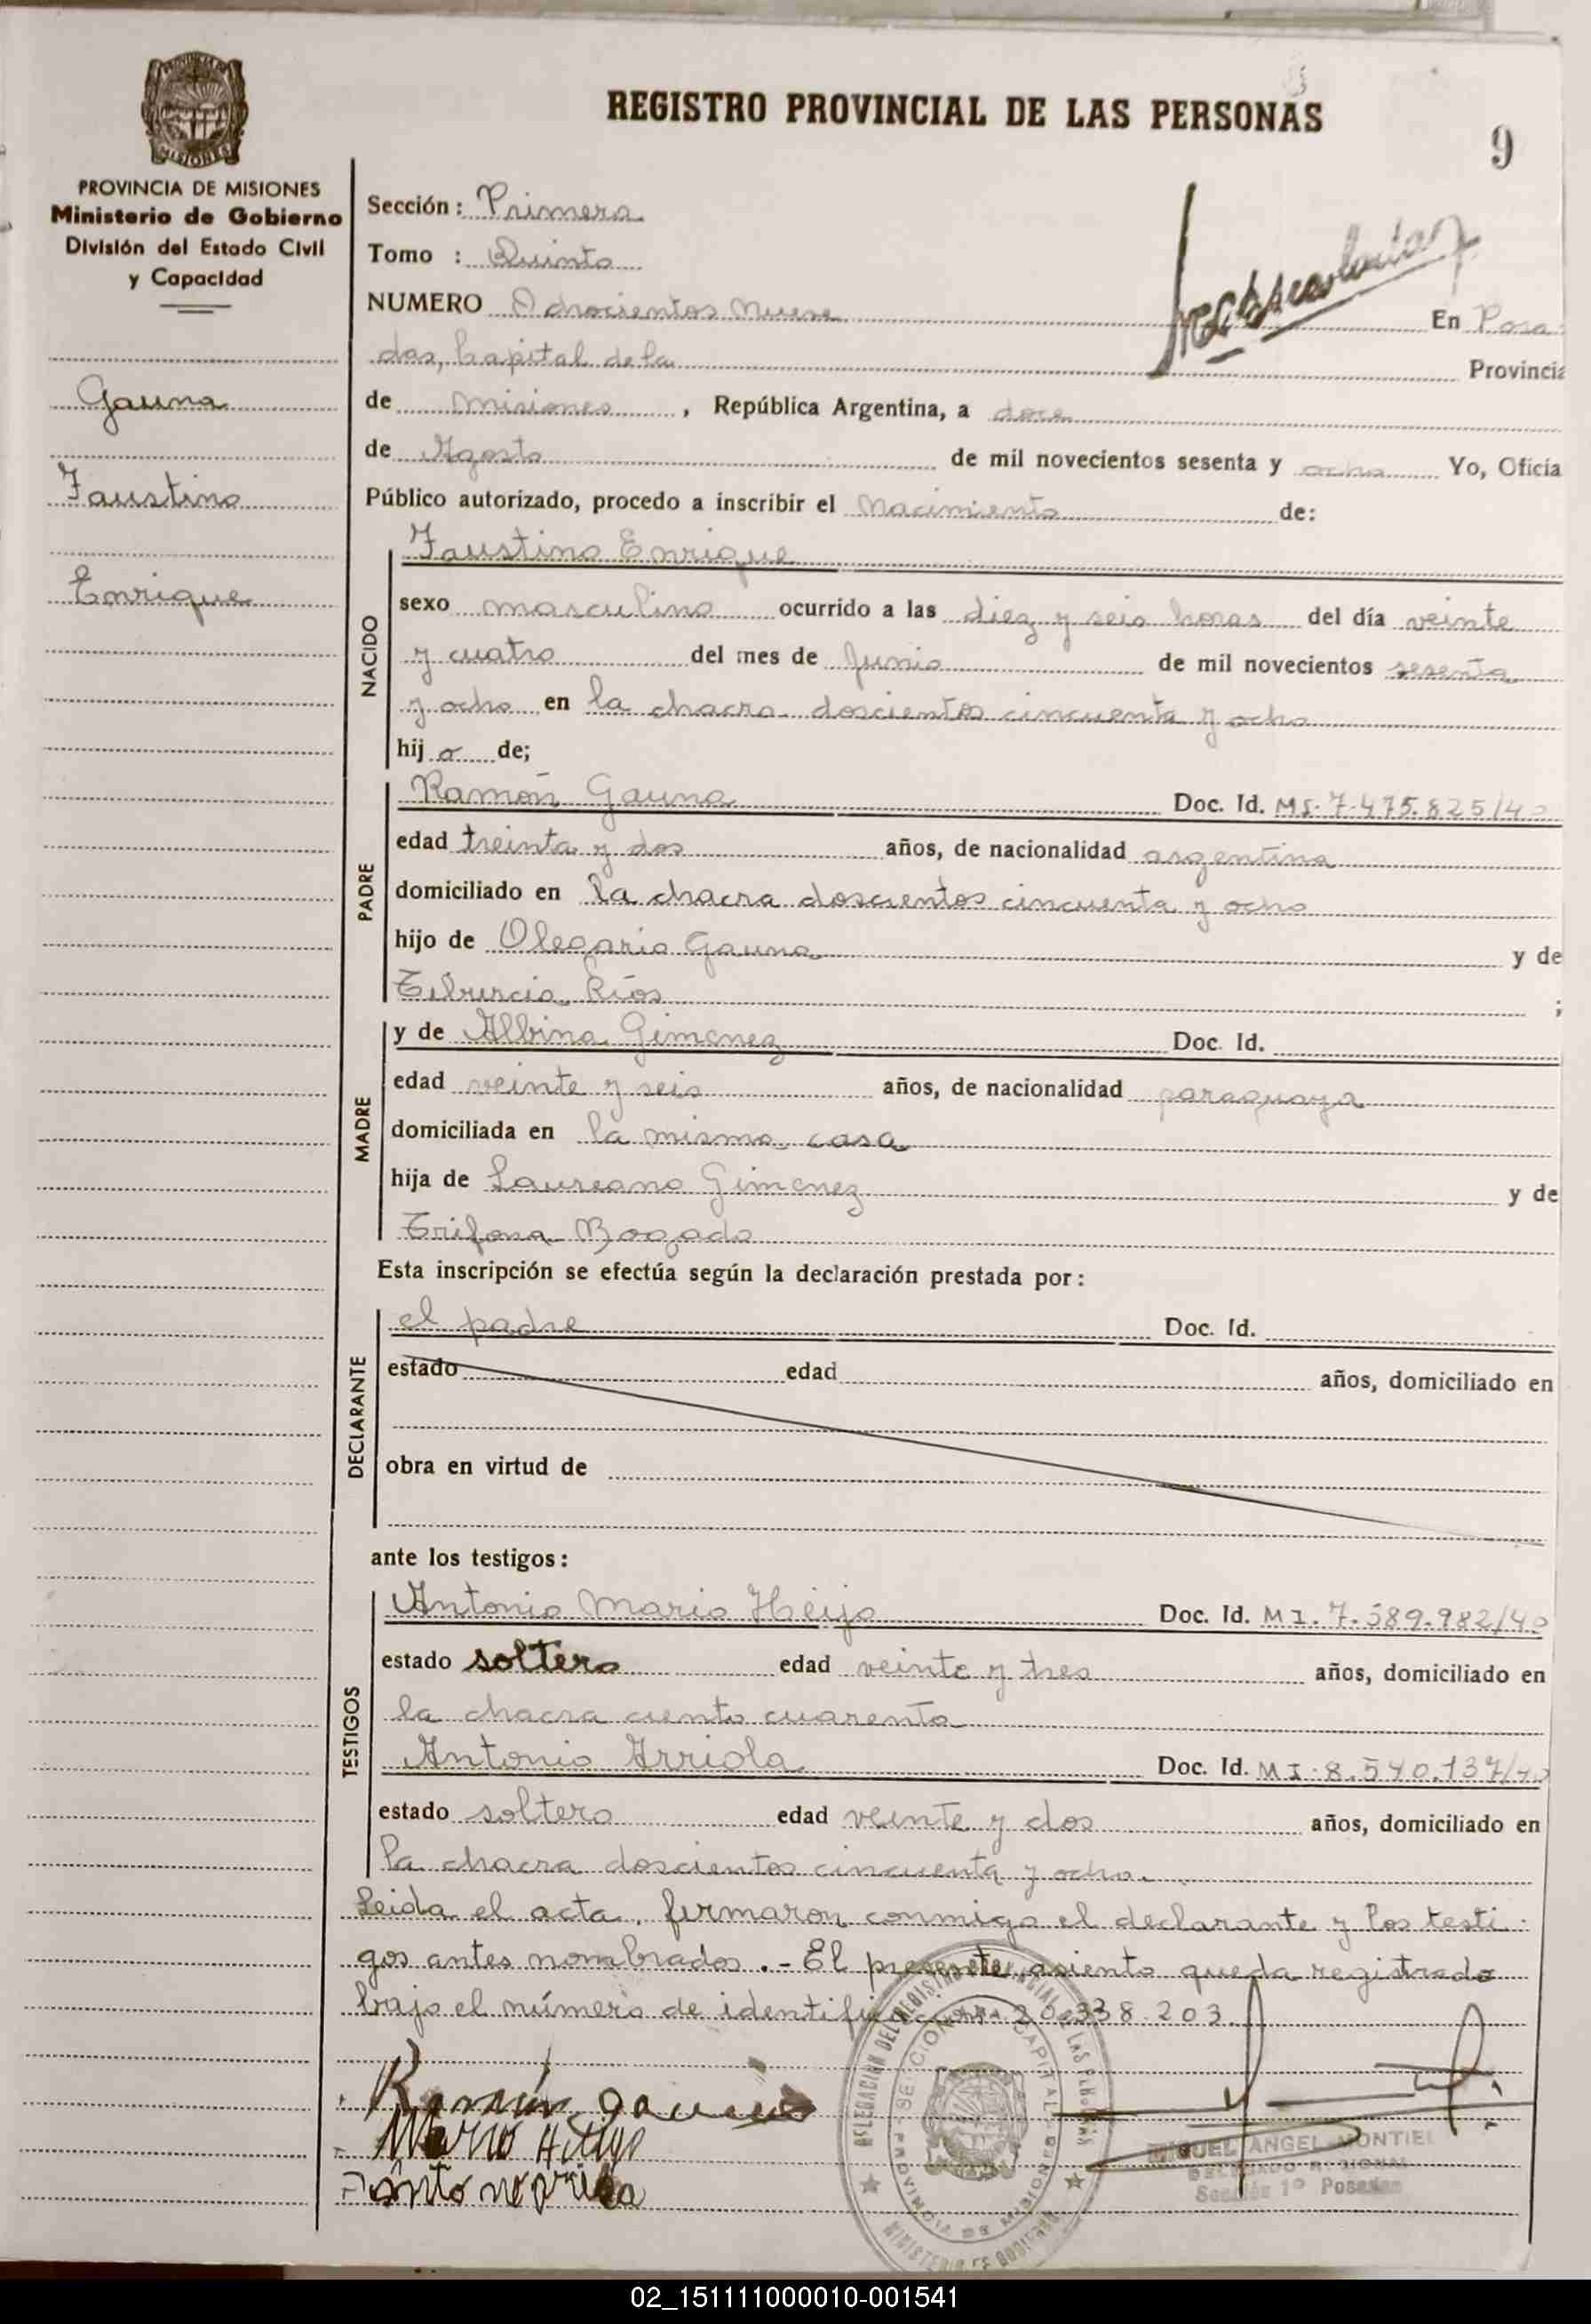 REGISTRO PROVINCIAL DE LAS PERSONAS
9
MISIONES
PROVINCIA DE MISIONES
Ministerio de Gobierno
División del Estado Civil
y Capacidad
Gauna
Faustino
Enrique
Sección: Primera
Tomo : Quinto
NUMERO Ochocientos Nueve En Posa-
das, Capital de la Provincia
de Misiones, República Argentina, a doce
de Agosto de mil novecientos sesenta y ocho Yo, Oficia
Público autorizado, procedo a inscribir el Nacimiento de:
NACIDO
Faustino Enrique
sexo masculino ocurrido a las diez y seis horas del día veinte
y cuatro del mes de Junio de mil novecientos sesenta
y ocho en la chacra doscientos cincuenta y ocho
hijo de;
PADRE
Ramón Gauna Doc. Id. M.I. 7.475.825/40
edad treinta y dos años, de nacionalidad argentina
domiciliado en la chacra doscientos cincuenta y ocho
hijo de Olegario Gauna y de
Tiburcia Ríos ;
MADRE
y de Albina Gimenez Doc. Id.
edad veinte y seis años, de nacionalidad paraguaya
domiciliada en la misma casa
hija de Laureano Gimenez y de
Trifona Bogado
Esta inscripción se efectúa según la declaración prestada por:
DECLARANTE
el padre Doc. Id.
estado edad años, domiciliado en
obra en virtud de
ante los testigos:
TESTIGOS
Antonio Mario Heijo Doc. Id. M I. 7.589.982/40
estado soltero edad veinte y tres años, domiciliado en
la chacra ciento cuarenta
Antonio Arriola Doc. Id. M I. 8.540.137/40
estado soltero edad veinte y dos años, domiciliado en
la chacra doscientos cincuenta y ocho.
Leida el acta, firmaron conmigo el declarante y los testi-
gos antes nombrados.- El presente asiento queda registrado
bajo el número de identificación 20.338.203.
Ramón Gauna
Mario
DELEGACION DEL REGISTRO PROVINCIAL DE LAS PERSONAS
SECCION 1ª CAPITAL
PROVINCIA DE MISIONES
MINISTERIO DE GOBIERNO
MIGUEL ANGEL MONTIEL
DELEGADO REGIONAL
Sección 1º Posadas
02_151111000010-001541